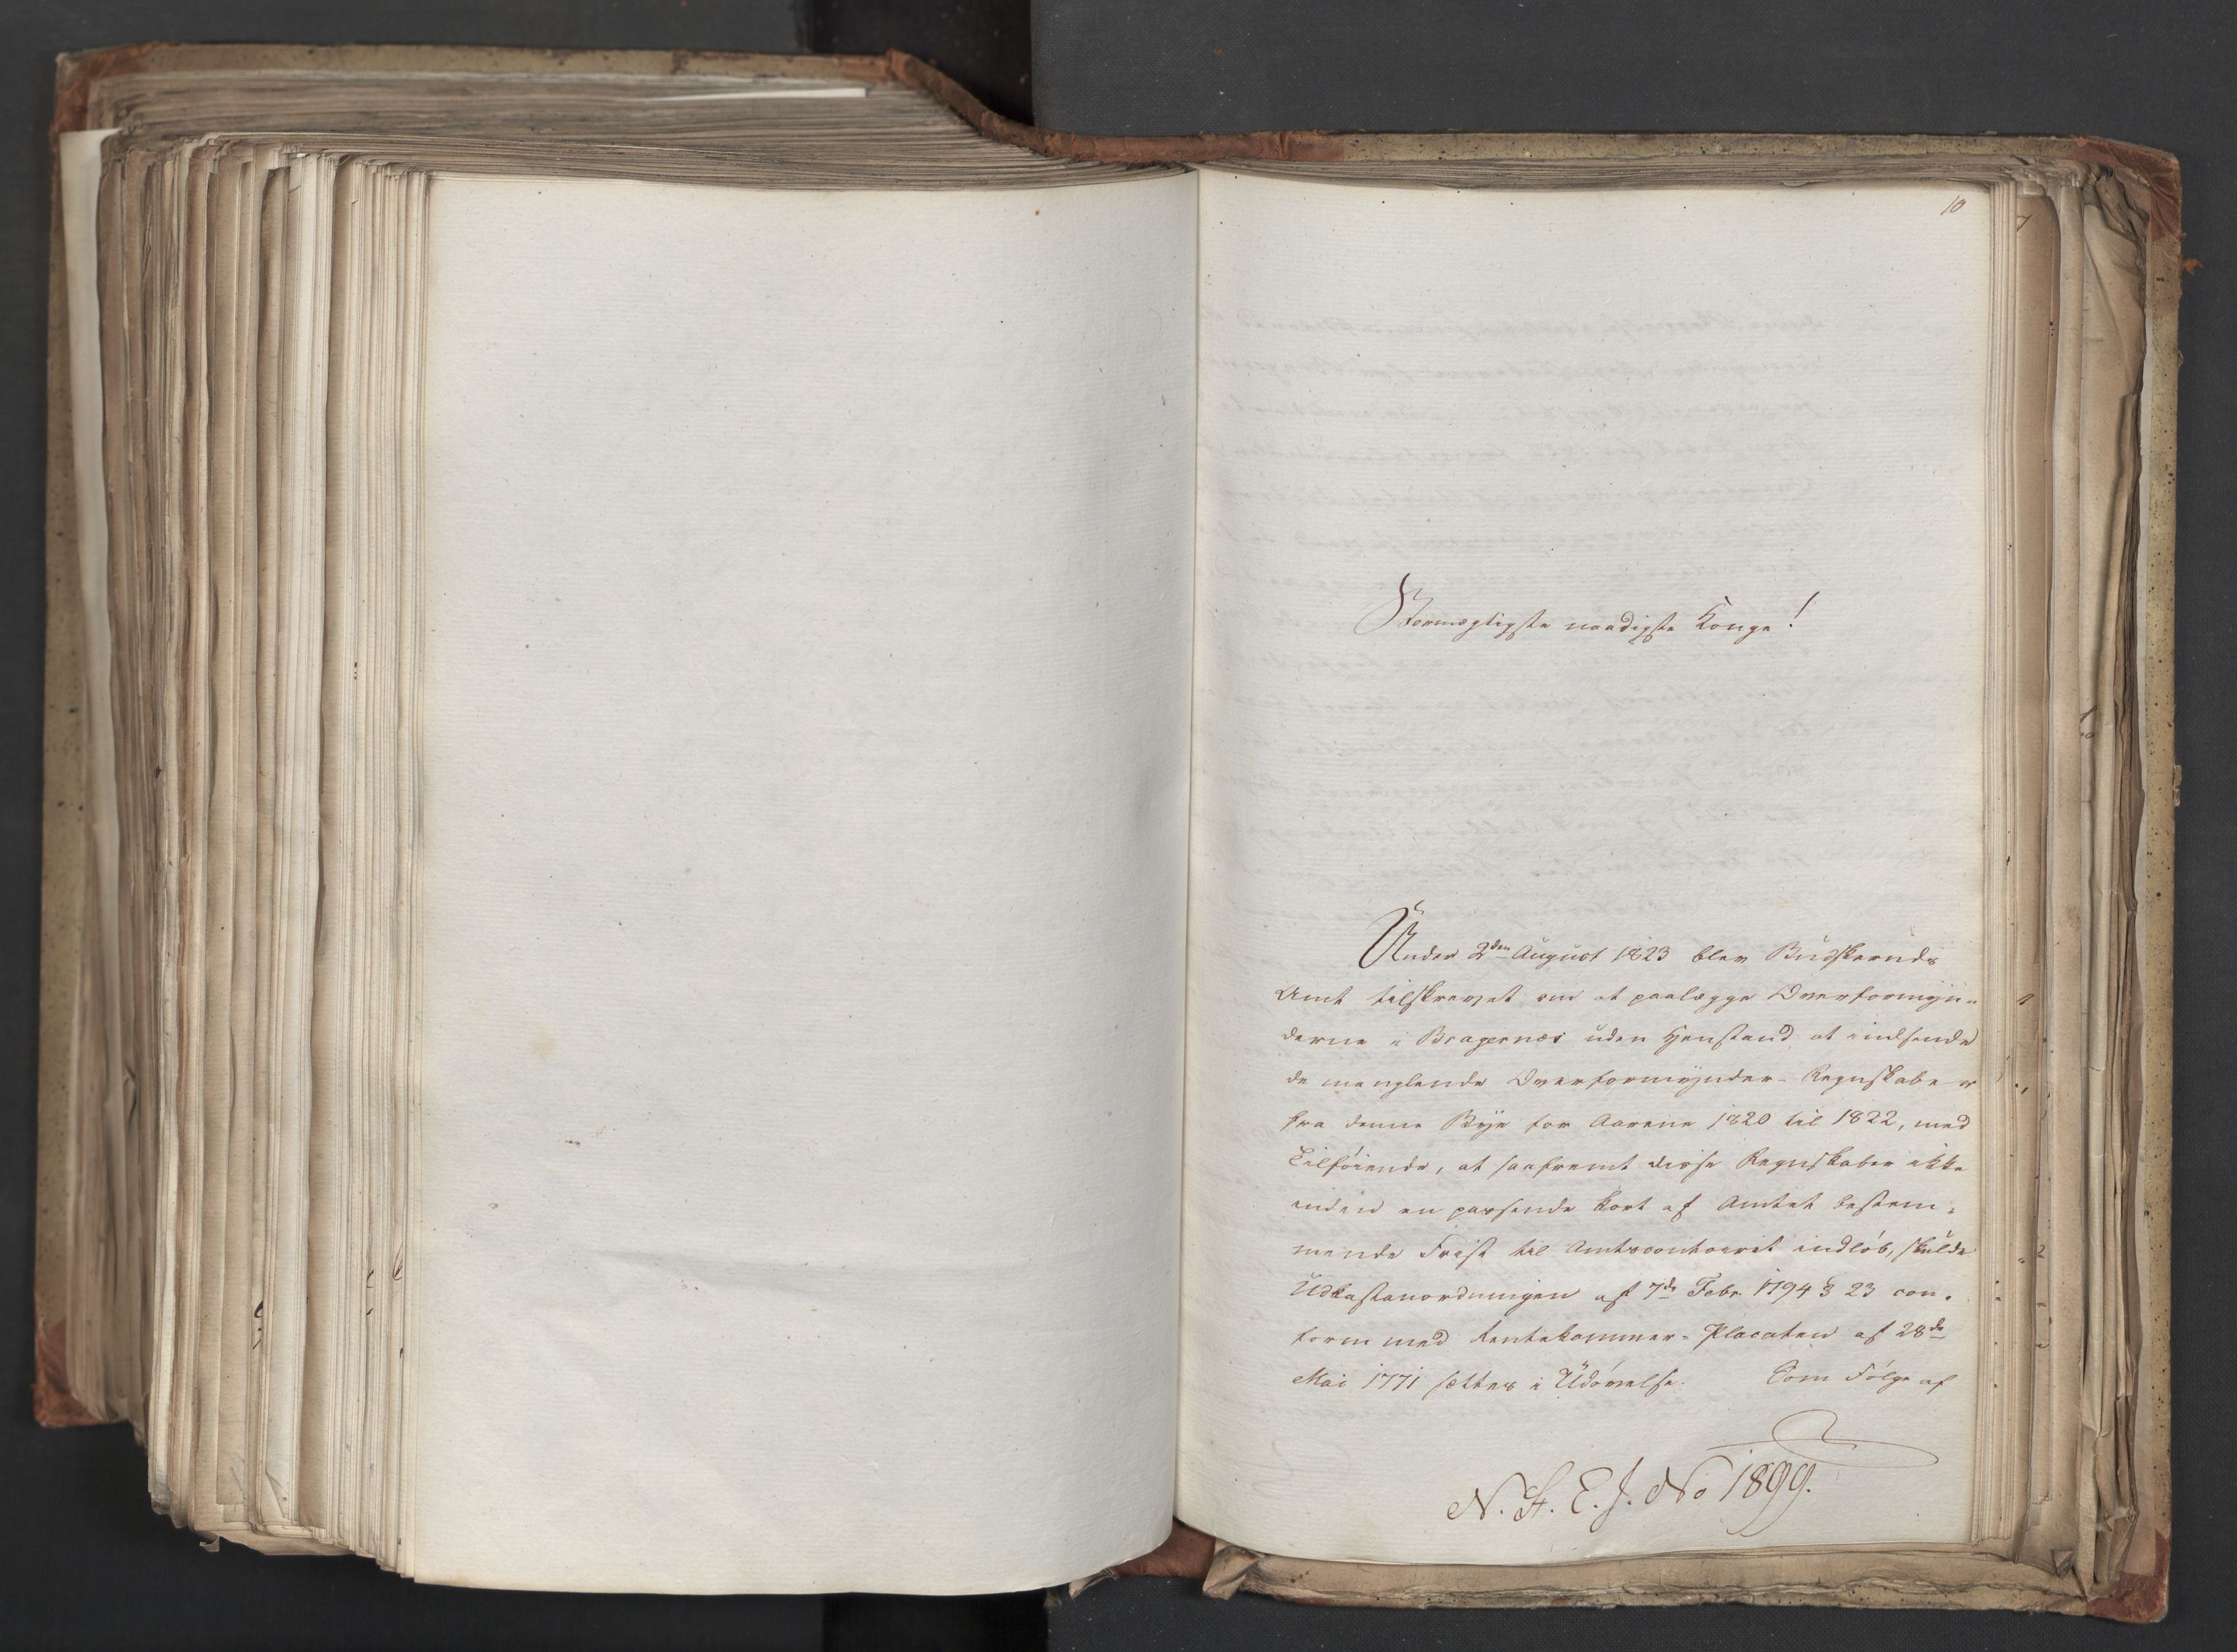 10
Stormægtigste naadigste Konge!
Under 2den August 1823 blev Buskeruds
Amt tilskrevet om at paalægge Overformyn-
derne i Bragernæs uden Henstand at indsende
de manglende Overformynder-Regnskaber
fra denne Bye for Aarene 1820 til 1822, med
Tilføiende, at saafremt disse Regnskaber ikke
inden en passende kort af Amtet bestem-
mende Frist til Amtscontoiret indløb, skulde
Udkastanordningen af 7de Febr. 1794 § 23 con-
form med Rentekammer-Placaten af 28de
Mai 1771 sættes i Udøvelse. Som Følge af
N. St. E. J. No 1899.